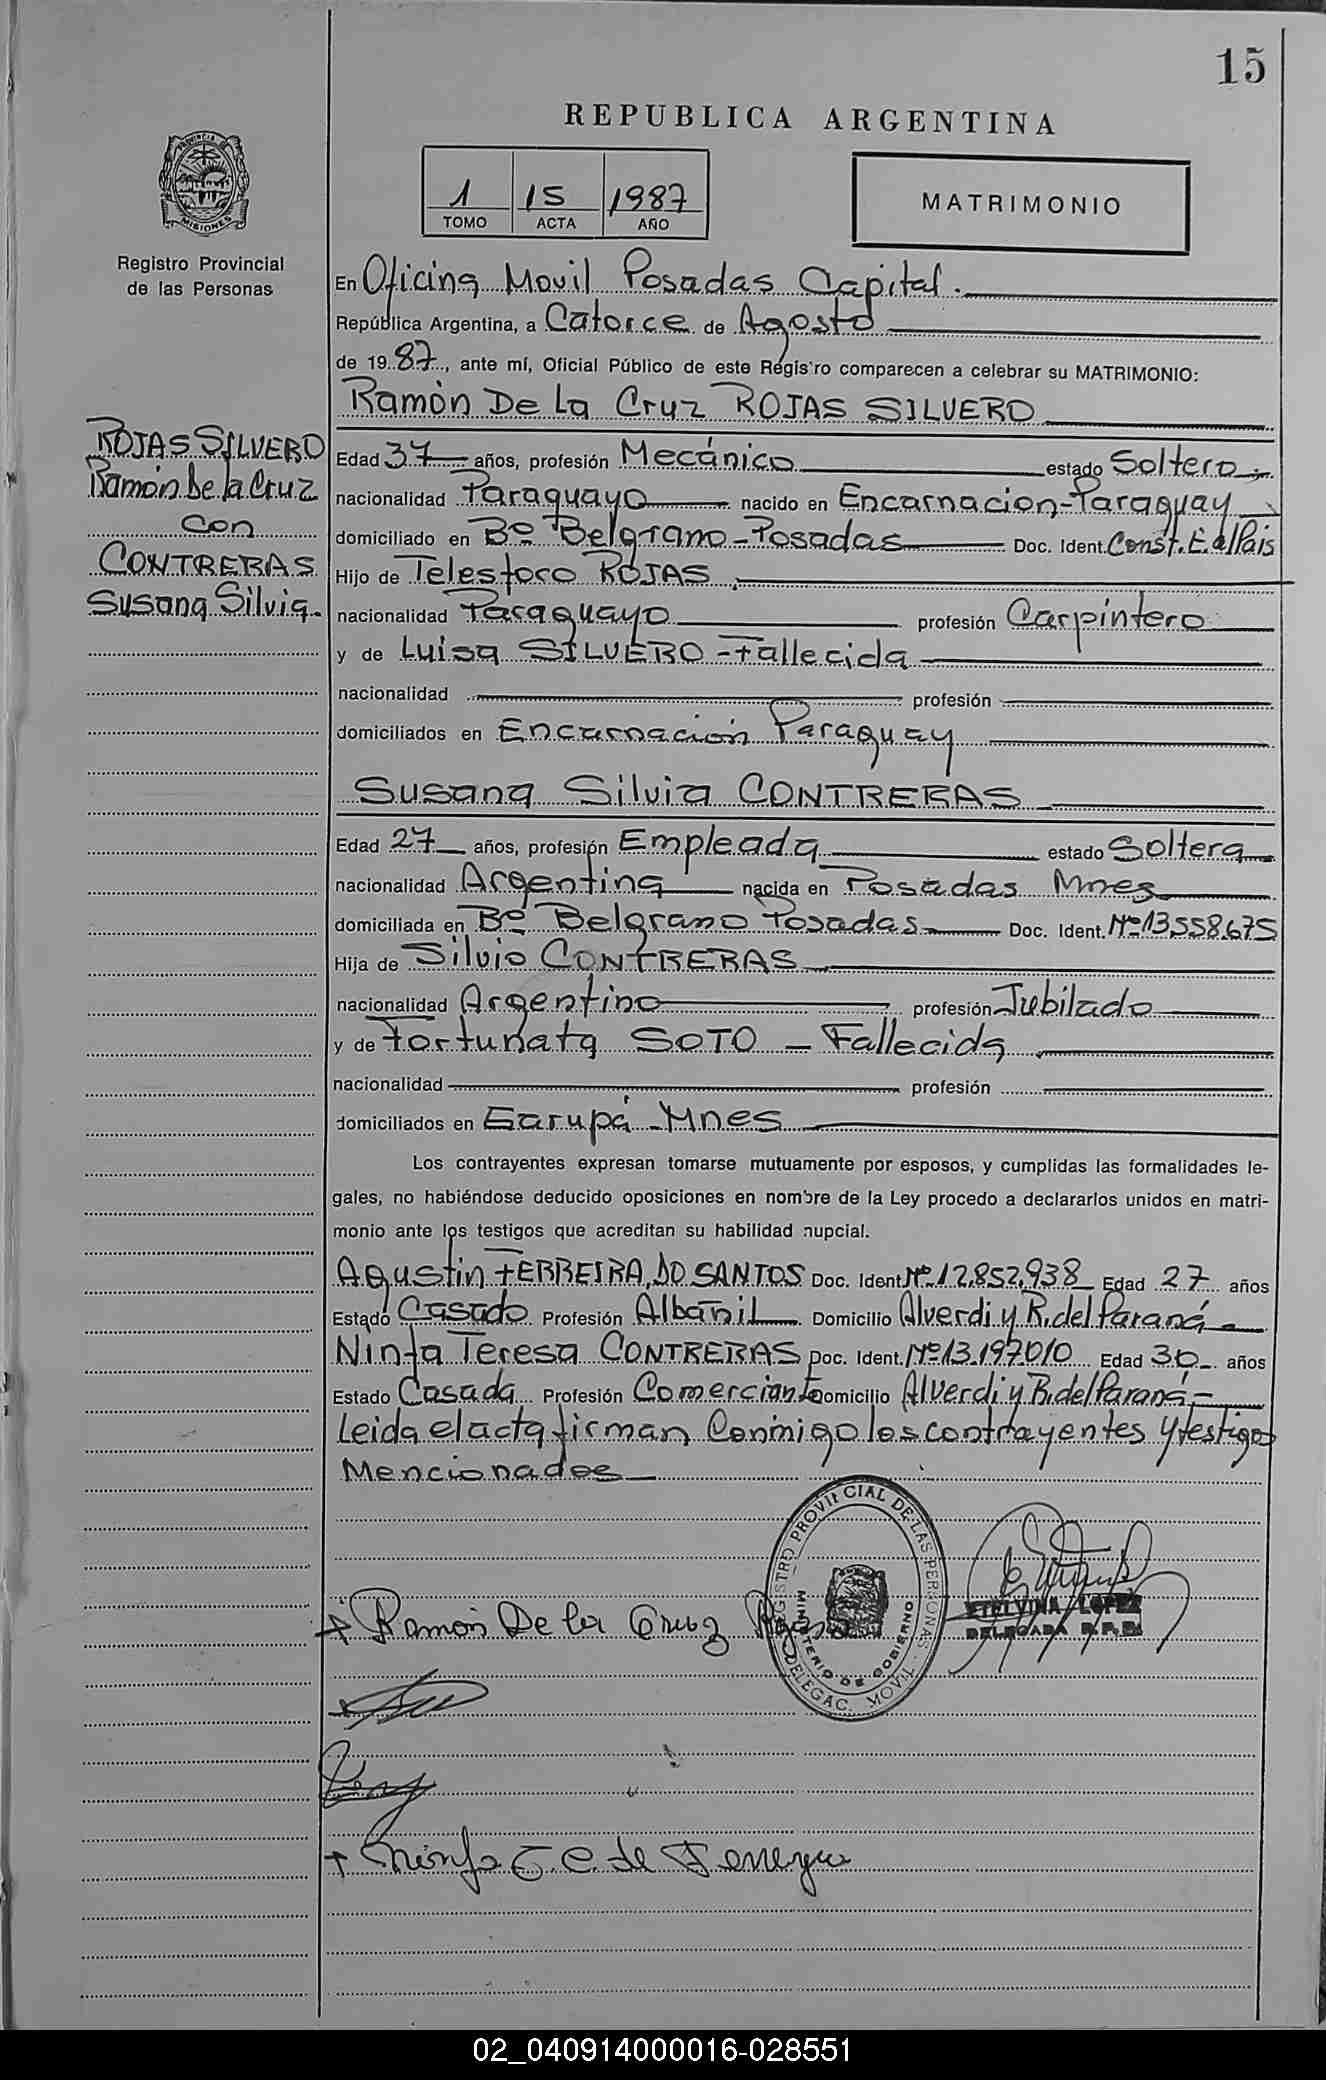 15
REPUBLICA ARGENTINA
PROVINCIA DE
MISIONES
1 15 1987
TOMO ACTA AÑO
MATRIMONIO
Registro Provincial
de las Personas
En Oficina Movil Posadas Capital.
República Argentina, a Catorce de Agosto
de 1987, ante mí, Oficial Público de este Registro comparecen a celebrar su MATRIMONIO:
Ramón De La Cruz ROJAS SILVERO
ROJAS SILVERO
Ramón De la Cruz
con
CONTRERAS
Susana Silvia.
Edad 37 años, profesión Mecánico estado Soltero
nacionalidad Paraguayo nacido en Encarnacion-Paraguay
domiciliado en Bº Belgrano-Posadas Doc. Ident. Const. E. al Pais
Hijo de Telesforo ROJAS
nacionalidad Paraguayo profesión Carpintero
y de Luisa SILVERO-Fallecida
nacionalidad profesión
domiciliados en Encarnación Paraguay
Susana Silvia CONTRERAS
Edad 27 años, profesión Empleada estado Soltera
nacionalidad Argentina nacida en Posadas Mnes
domiciliada en Bº Belgrano Posadas Doc. Ident. Nº 13.558.675
Hija de Silvio CONTRERAS
nacionalidad Argentino profesión Jubilado
y de Fortunata SOTO - Fallecida
nacionalidad profesión
domiciliados en Garupá-Mnes
Los contrayentes expresan tomarse mutuamente por esposos, y cumplidas las formalidades le-
gales, no habiéndose deducido oposiciones en nombre de la Ley procedo a declararlos unidos en matri-
monio ante los testigos que acreditan su habilidad nupcial.
Agustin FERREIRA DO SANTOS Doc. Ident. Nº 12.852.938 Edad 27 años
Estado Casado Profesión Albañil Domicilio Alverdi y R. del Paraná
Ninfa Teresa CONTRERAS Doc. Ident. Nº 13.197.010 Edad 30 años
Estado Casada Profesión Comerciante Domicilio Alverdi y R. del Paraná
Leida el acta firman Conmigo los contrayentes y testigos
Mencionados
REGISTRO PROVINCIAL DE LAS PERSONAS
MINISTERIO DE GOBIERNO
DELEGAC. MOVIL
ETELVINA LOPEZ
DELEGADA R.P.P.
Ramón De la Cruz Rojas
Ninfa T. C. de Ferreyra
02_040914000016-028551